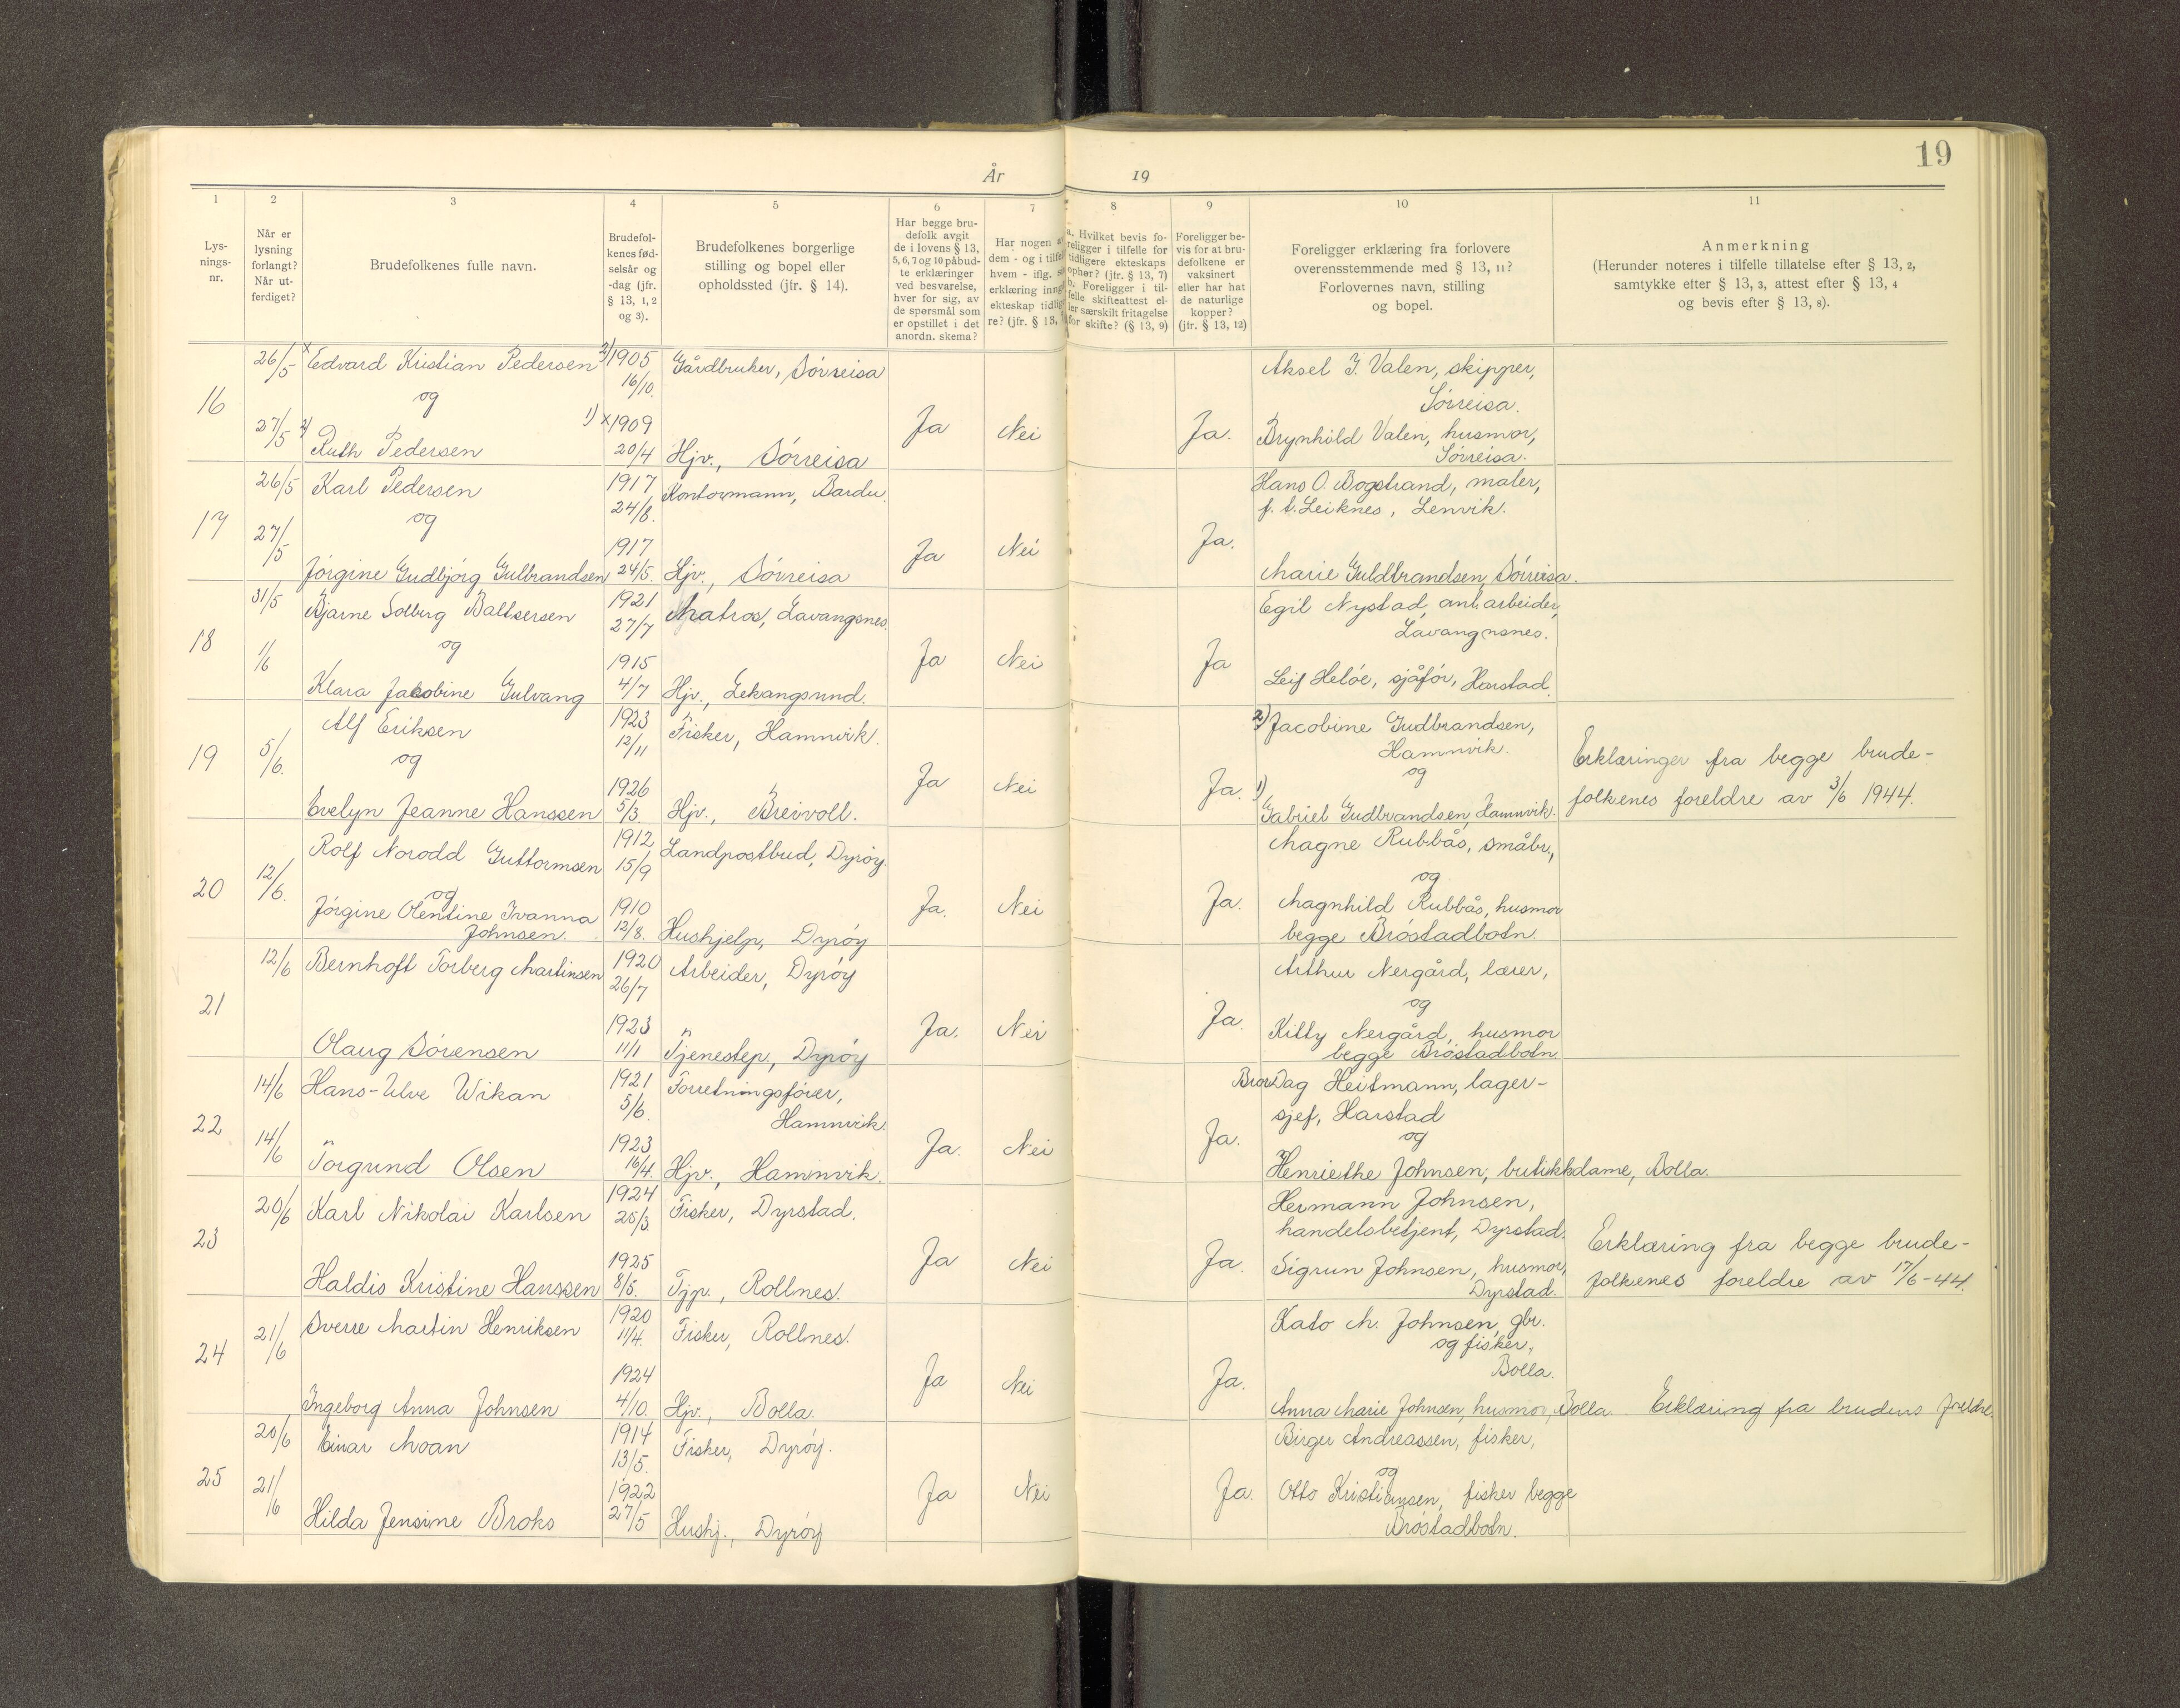 19
År 19
1 2 3 4 5 6 7 8 9 10 11
Lys-
nings-
nr.
Når er
lysning
forlangt?
Når ut-
ferdiget?
Brudefolkenes fulle navn.
Brudefol-
kenes fød-
selsår og
-dag (jfr.
§ 13, 1, 2
og 3).
Brudefolkenes borgerlige
stilling og bopel eller
opholdssted (jfr. § 14).
Har begge bru-
defolk avgit
de i lovens § 13,
5, 6, 7 og 10 påbud-
te erklæringer
ved besvarelse,
hver for sig, av
de spørsmål som
er opstillet i det
anordn. skema?
Har nogen a
dem - og i tilfe
hvem - iflg. s
erklæring inng
ekteskap tidlig
re? (jfr. § 13,
a. Hvilket bevis fo-
religger i tilfelle for
tidligere ekteskaps
ophør? (jfr. § 13, 7)
b. Foreligger i til-
felle skifteattest el-
ler særskilt fritagelse
for skifte? (§ 13, 9)
Foreligger be-
vis for at bru-
defolkene er
vaksinert
eller har hat
de naturlige
kopper?
(jfr. § 13, 12)
Foreligger erklæring fra forlovere
overensstemmende med § 13, 11?
Forlovernes navn, stilling
og bopel.
Anmerkning
(Herunder noteres i tilfelle tillatelse efter § 13, 2,
samtykke efter § 13, 3, attest efter § 13, 4
og bevis efter § 13, 8).
16
26/5 x Edvard Kristian Pedersen 2) 1905 Gårdbruker, Sörreisa
16/10.
og
27/5 2) Ruth Pedersen 1) x 1909
20/4 Hjv., Sörreisa
Ja Nei Ja.
Aksel J. Valen, skipper,
Sörreisa.
Brynhild Valen, husmor,
Sörreisa.
17
26/5 Karl Pedersen 1917 Kontormann, Bardu.
24/8.
og
27/5 1917
Jörgine Gudbjörg Gulbrandsen 24/5. Hjv., Sörreisa
Ja Nei Ja.
Hans O. Bogstrand, maler,
f. t. Leiknes, Lenvik.
Marie Guldbrandsen, Sörreisa.
18
31/5 Bjarne Solberg Baltsersen 1921 Matros, Lavangsnes.
27/7
og
1/6 1915
Klara Jakobine Gulvang 4/7 Hjv., Lekangsund.
Ja Nei Ja
Egil Nystad, anl. arbeider,
Lavangnsnes.
Leif Helöe, sjåför, Harstad.
19
5/6. Alf Eriksen 1923 Fisker, Hamnvik.
12/11
og
1926
Evelyn Jeanne Hanssen 5/3. Hjv., Breivoll.
Ja Nei Ja.
2) Jacobine Gudbrandsen,
Hamnvik.
og
1) Gabriel Gudbrandsen, Hamnvik.
Erklæringer fra begge brude-
folkenes foreldre av 3/6 1944.
20
12/6. Rolf Norodd Guttormsen 1912 Landpostbud, Dyröy.
15/9
og
Jörgine Olentine Ivanna 1910
Johnsen. 12/8. Hushjelp, Dyröy
Ja. Nei Ja.
Magne Rubbås, småbr.,
og
Magnhild Rubbås, husmor
begge Bröstadbotn.
21
12/6 Bernhoft Torberg Martinsen 1920 Arbeider, Dyröy
26/7
1923
Olaug Sörensen 11/1 Tjenestep., Dyröy
Ja. Nei Ja.
Arthur Nergård, lærer,
og
Kitty Nergård, husmor
begge Bröstadbotn
22
14/6 Hans-Ulve Wikan 1921 Forretningsförer,
5/6. Hamnvik.
14/6 1923
Torgund Olsen 16/4. Hjv., Hamnvik.
Ja. Nei Ja.
Bror Dag Heitmann, lager-
sjef, Harstad
og
Henriethe Johnsen, butikkdame, Bolla.
23
20/6 Karl Nikolai Karlsen 1924 Fisker, Dyrstad.
25/3.
1925
Haldis Kristine Hanssen 8/5. Tjp., Rollnes.
Ja Nei Ja.
Hermann Johnsen,
handelsbetjent, Dyrstad.
Sigrun Johnsen, husmor,
Dyrstad.
Erklæring fra begge brude-
folkenes foreldre av 17/6-44.
24
21/6 Sverre Martin Henriksen 1920 Fisker, Rollnes.
11/4.
1924
Ingeborg Anna Johnsen 4/10. Hjv., Bolla.
Ja Nei Ja.
Kato M. Johnsen, gbr.
og fisker,
Bolla.
Anna Marie Johnsen, husmor, Bolla. Erklæring fra brudens foreldre.
25
20/6 Einar Moan 1914 Fisker, Dyröy.
13/5.
21/6 1922
Hilda Jensine Broks 27/5 Hushj., Dyröy
Ja Nei Ja.
Birger Andreassen, fisker,
og
Otto Kristiansen, fisker begge
Bröstadbotn.